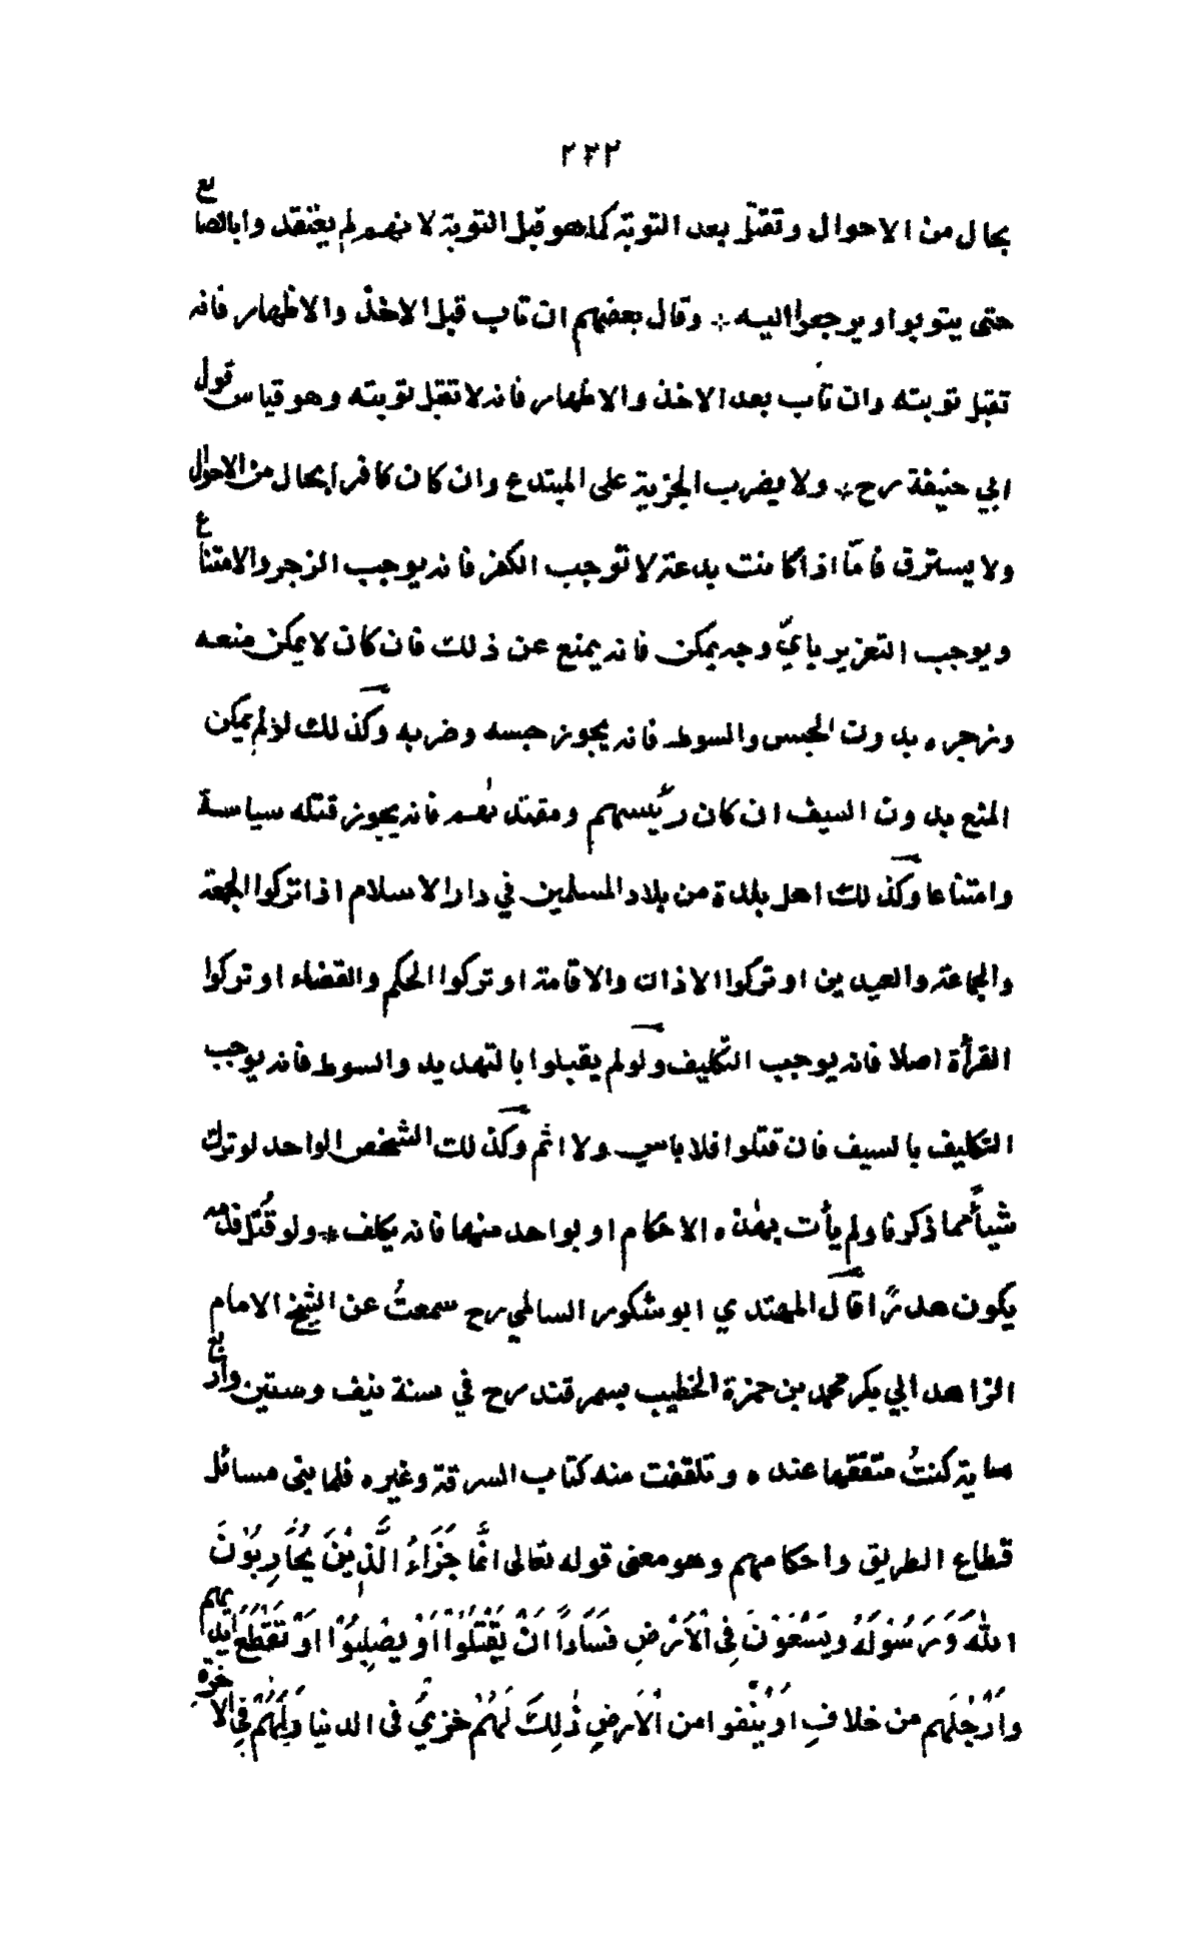 ٢٣٢
بحال من الاحوال وتقتل بعد التوبة كما هو قبل التوبة لا نهم لم يعتقد وابالصانع
حتى يتوبوا ويرجعوا اليه ÷ وقال بعضهم ان تاب قبل الاخذ والاظهار فانه
تقبل توبته وان تاب بعد الاخذ والاظهار فانه لا تقبل توبته وهو قياس قول
ابي حنيفة رح ÷ ولا يضرب الجزية على المبتدع وان كان كافرا بحال من الاحوال
ولا يسترق فامّا اذا كانت بدعته لا توجب الكفر فانه يوجب الزجر والامتناع
ويوجب التعزير بايّ وجه يمكن فانه يمنع عن ذلك فان كان لا يمكن منعه
وزجره بدون الحبس والسوط فانه يجوز حبسه وضربه وكذلك لو لم يمكن
المنع بدون السيف ان كان رئيسهم ومقتداهم فانه يجوز قتله سياسة
وامتناعا وكذلك اهل بلدة من بلاد المسلمين في دار الاسلام اذا تركوا الجمعة
والجماعة والعيدين او تركوا الاذان والاقامة او تركوا الحكم والقضاء او تركوا
القرأة اصلا فانه يوجب التكليف ولو لم يقبلوا بالتهديد والسوط فانه يوجب
التكليف بالسيف فان قتلوا فلا باس ولا اثم وكذلك الشخص الواحد لو ترك
شيأ مما ذكرنا ولم يأت بهذه الاحكام او بواحد منها فانه يكلف ÷ ولو قُتل فدمه
يكون هدرًا قال المهتدي ابو شكور السالمي رح سمعتُ عن الشيخ الامام
الزاهد ابي بكر محمد بن حمزة الخطيب بسمرقند رح في سنة نيف وستين واربع
مايه كنتُ متفقها عنده وتلقفت منه كتاب السرقة وغيره فلما بنى مسائل
قطاع الطريق واحكامهم وهو معنى قوله تعالى انَّما جَزَاءُ الَّذِيْنَ يُحَارِبُوْنَ
اللّٰهَ وَرَسُوْلَهُ ويَسْعَوْنَ فِى الْاَرْضِ فَسَادًا اَنْ يُقْتَلُوْا اَوْ يصْلبُوْا اوْ تُقَطَّعَ ايديهم
وَاَرْجُلَهم من خلافٍ اَوْ يُنْفَوا من الْاَرضِ ذٰلِكَ لَهُمْ خزيٌ فى الدنيا وَلَهُمْ فِى الاخرة